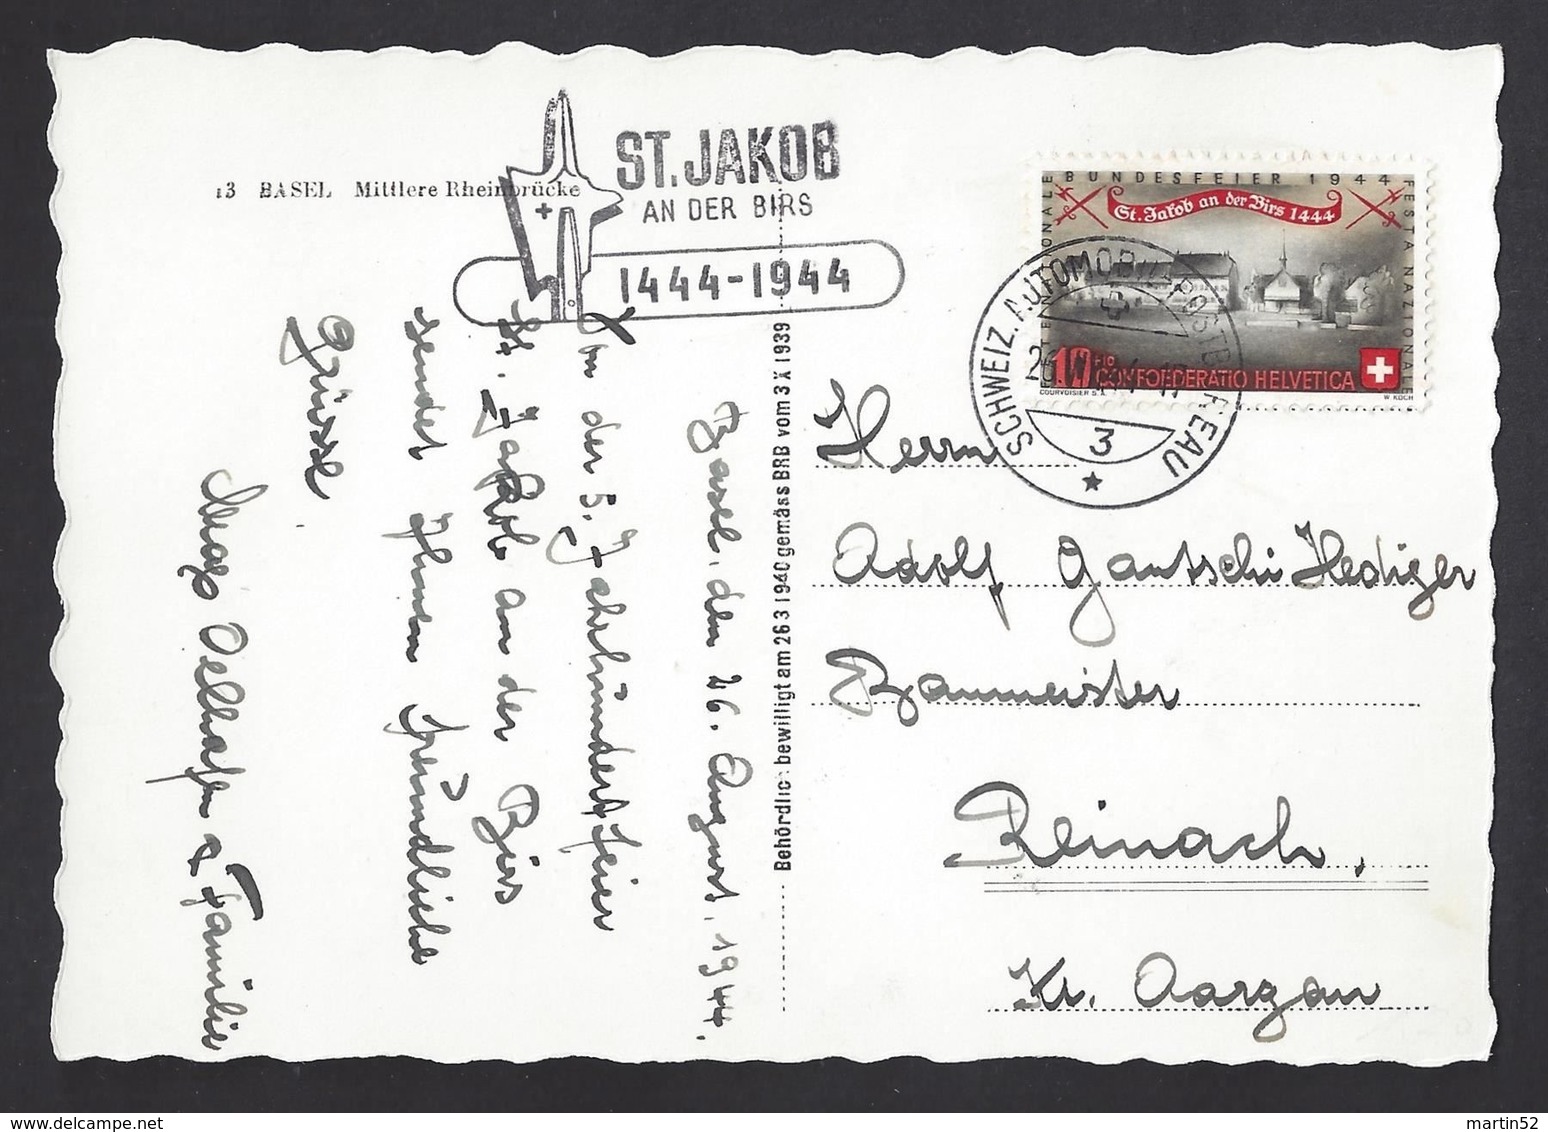 13 BASEL Mittlere Rheinbrücke
ST. JAKOB
AN DER BIRS
1444-1944
Basel, den 26. August, 1944.
Von der 5. Jahrhundertfeier
St. Jakob an der Birs
sendet Ihnen freundliche
Grüsse
Oelhafen & Familie
Behördlich bewilligt am 26 3 1940 gemäss BRB vom 3 X 1939
BUNDESFEIER 1944
FESTA NAZIONALE
St. Jakob an der Birs 1444
10
CONFOEDERATIO HELVETICA
COURVOISIER S.A.
W. KOCH
SCHWEIZ. AUTOMOBIL-POSTBUREAU
3
Herrn
Adolf Gautschi Hediger
Baumeister
Reinach,
Kt. Aargau
martin52